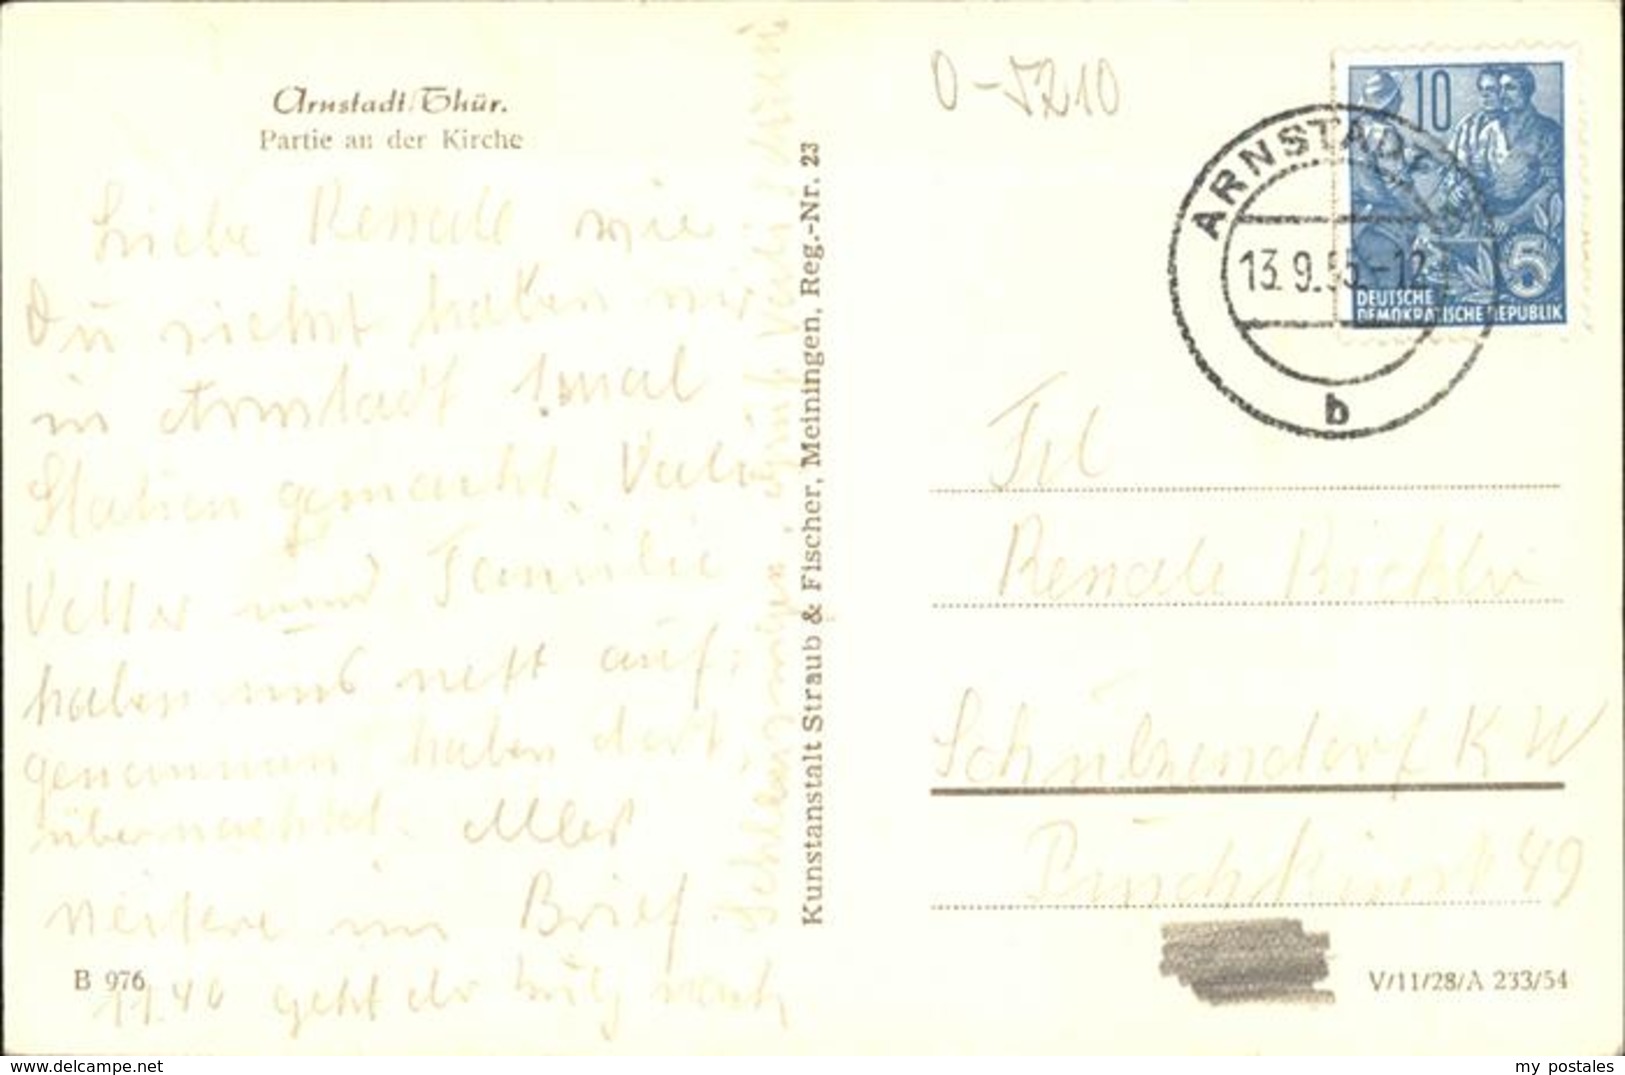 Arnstadt/Thür.
Partie an der Kirche
Liebe Renate wie
Du siehst haben wir
in Arnstadt 1.mal
Station gemacht. Vati
Vetter und Familie
haben uns nett auf=
genommen haben dort
übernachtet. Alles
weitere im Brief
11.40 geht der Zug nach
Schleusingen
B 976
Kunstanstalt Straub & Fischer, Meiningen, Reg.-Nr. 23
O-5210
ARNSTADT
13.9.55.-12
b
10
5
DEUTSCHE
DEMOKRATISCHE REPUBLIK
Frl
Renate
Schulzendorf KW
Puschkinst 49
V/11/28/A 233/54
my postales